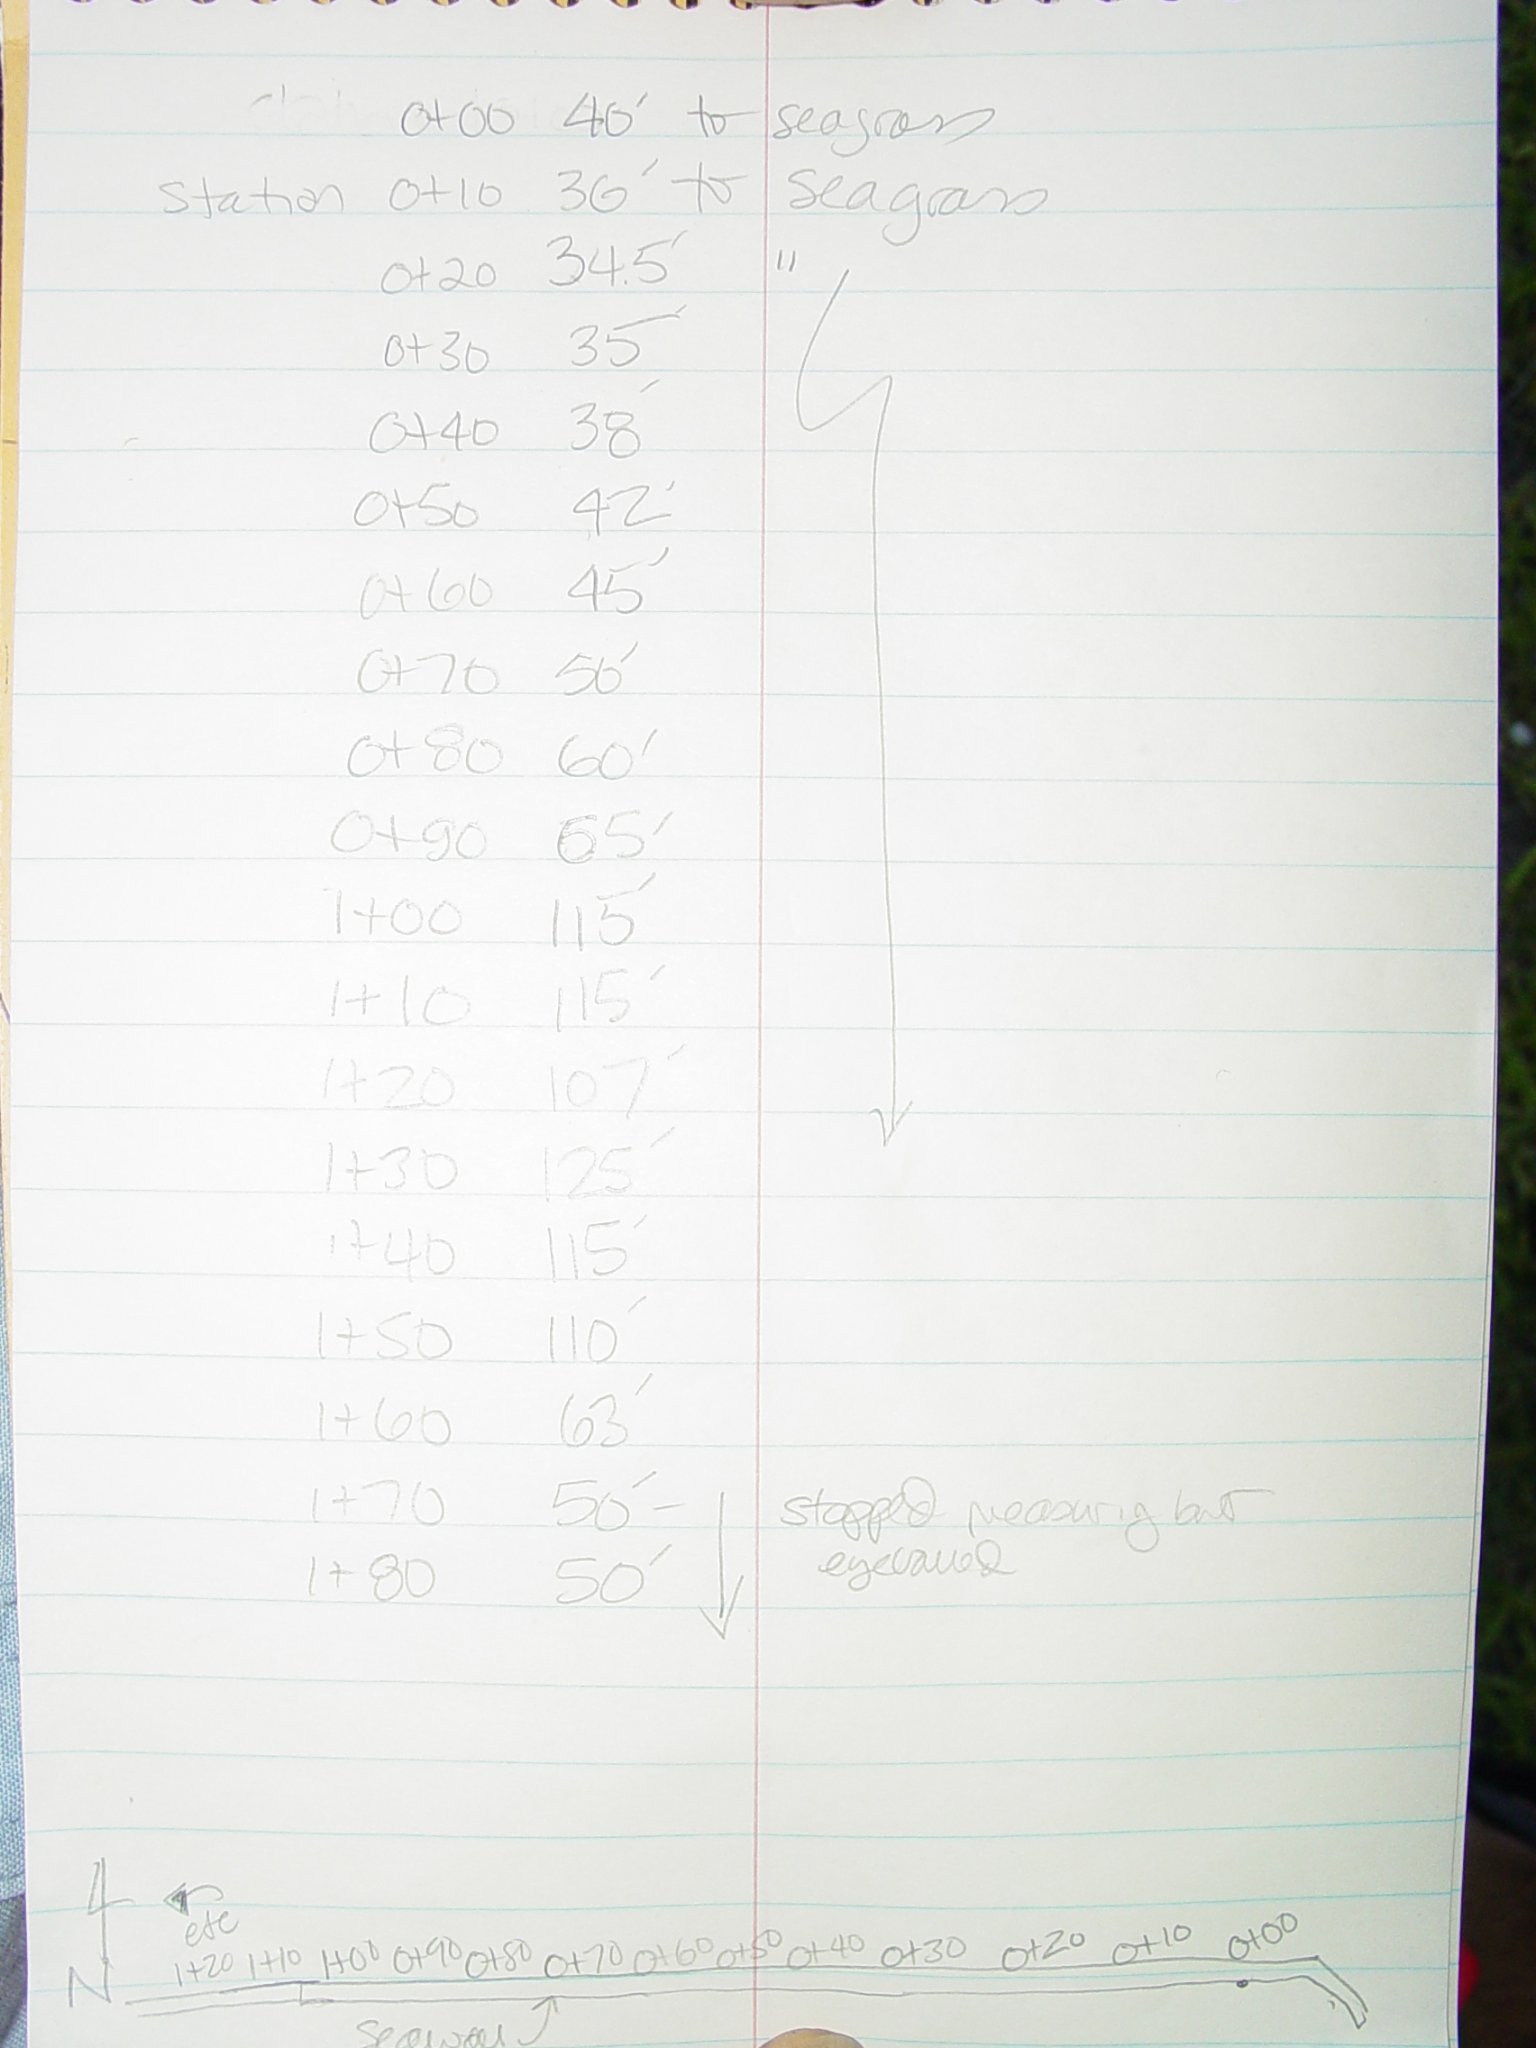 0+00 40' to seagrass
Station 0+10 36' to Seagrass
0+20 34.5' "
0+30 35'
0+40 38'
0+50 42'
0+60 45'
0+70 50'
0+80 60'
0+90 65'
1+00 115'
1+10 115'
1+20 107'
1+30 125'
1+40 115'
1+50 110'
1+60 63'
1+70 50'- stopped measuring but
1+80 50' eyeballed
etc
1+20 1+10 1+00 0+90 0+80 0+70 0+60 0+50 0+40 0+30 0+20 0+10 0+00
N
Seawall